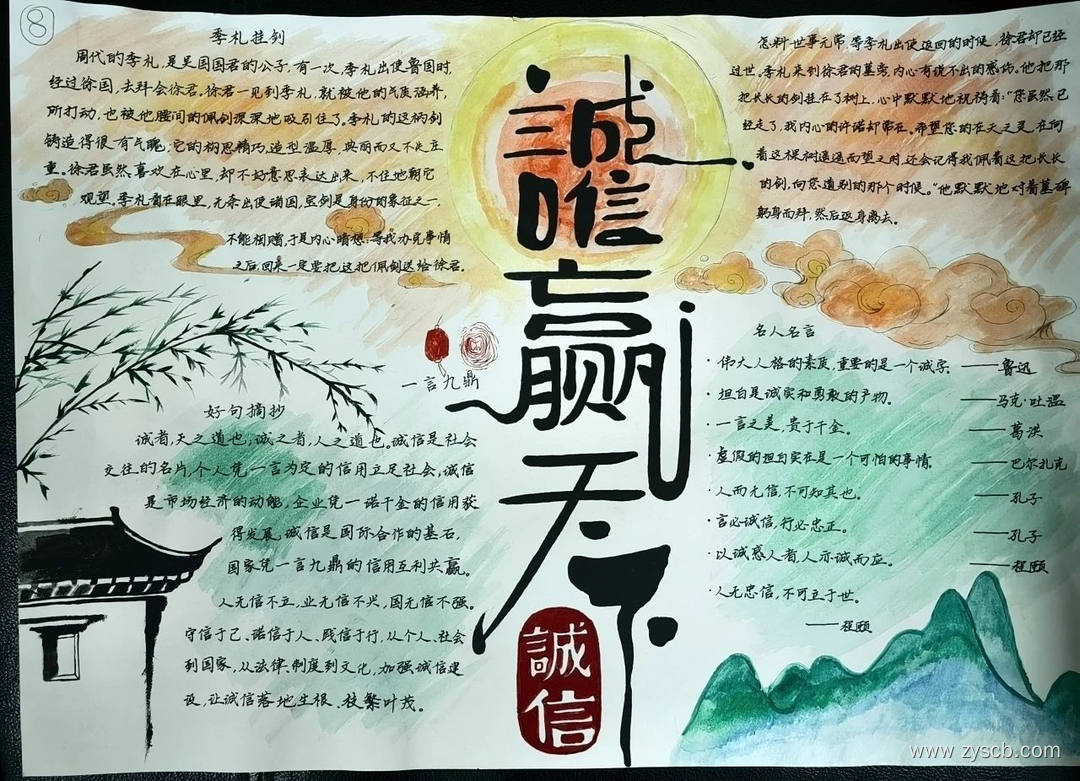 ⑧
季札挂剑
周代的季札,是吴国国君的公子,有一次,季札出使鲁国时,
经过徐国,去拜会徐君。徐君一见到季札,就被他的气质涵养,
所打动,也被他腰间的佩剑深深地吸引住了。季札的这柄剑
铸造得很有气魄,它的构思精巧,造型温厚,典丽而又不失庄
重。徐君虽然喜欢在心里,却不好意思表达出来,不住地朝它
观望。季札看在眼里,无奈出使诸国,宝剑是身份的象征之一,
不能相赠,于是内心暗想:等我办完事情
之后,回来一定要把这把佩剑送给徐君。
怎料世事无常,等季札出使返回的时候,徐君却已经
过世。季札来到徐君的墓旁,内心有说不出的感伤。他把那
把长长的剑挂在了树上,心中默默地祝祷着:“您虽然已
经走了,我内心的许诺却常在。希望您的在天之灵,在向
着这棵树遥遥而望之时,还会记得我佩着这把长长
的剑,向您道别的那个时候。”他默默地对着墓碑
躬身而拜,然后返身离去。
誠唯信赢天下
誠信
一言九鼎
好句摘抄
诚者,天之道也;诚之者,人之道也。诚信是社会
交往的名片,个人凭一言为定的信用立足社会,诚信
是市场经济的动能,企业凭一诺千金的信用获
得发展,诚信是国际合作的基石,
国家凭一言九鼎的信用互利共赢。
人无信不立,业无信不兴,国无信不强。
守信于己、诺信于人、践信于行,从个人、社会
到国家,从法律、制度到文化,加强诚信建
设,让诚信落地生根、枝繁叶茂。
名人名言
·伟大人格的素质,重要的是一个诚字。——鲁迅
·坦白是诚实和勇敢的产物。——马克·吐温
·一言之美,贵于千金。——葛洪
·虚假的坦白实在是一个可怕的事情。——巴尔扎克
·人而无信,不可知其也。——孔子
·言必诚信,行必忠正。——孔子
·以诚感人者,人亦诚而应。——程颐
·人无忠信,不可立于世。
——程颐
www.zyscb.com